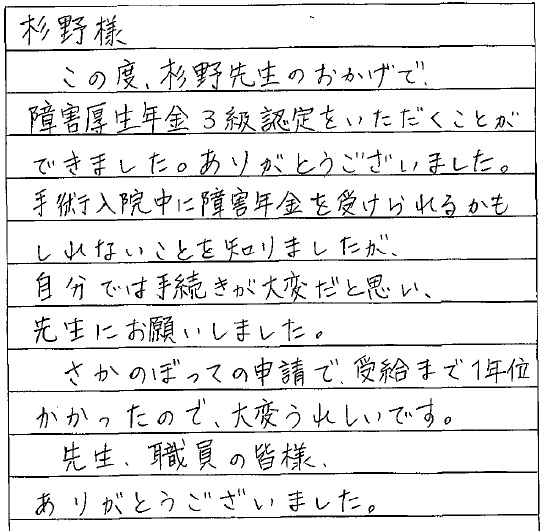 杉野様
この度、杉野先生のおかげで、
障害厚生年金3級認定をいただくことが
できました。ありがとうございました。
手術入院中に障害年金を受けられるかも
しれないことを知りましたが、
自分では手続きが大変だと思い、
先生にお願いしました。
さかのぼっての申請で、受給まで1年位
かかったので、大変うれしいです。
先生、職員の皆様、
ありがとうございました。